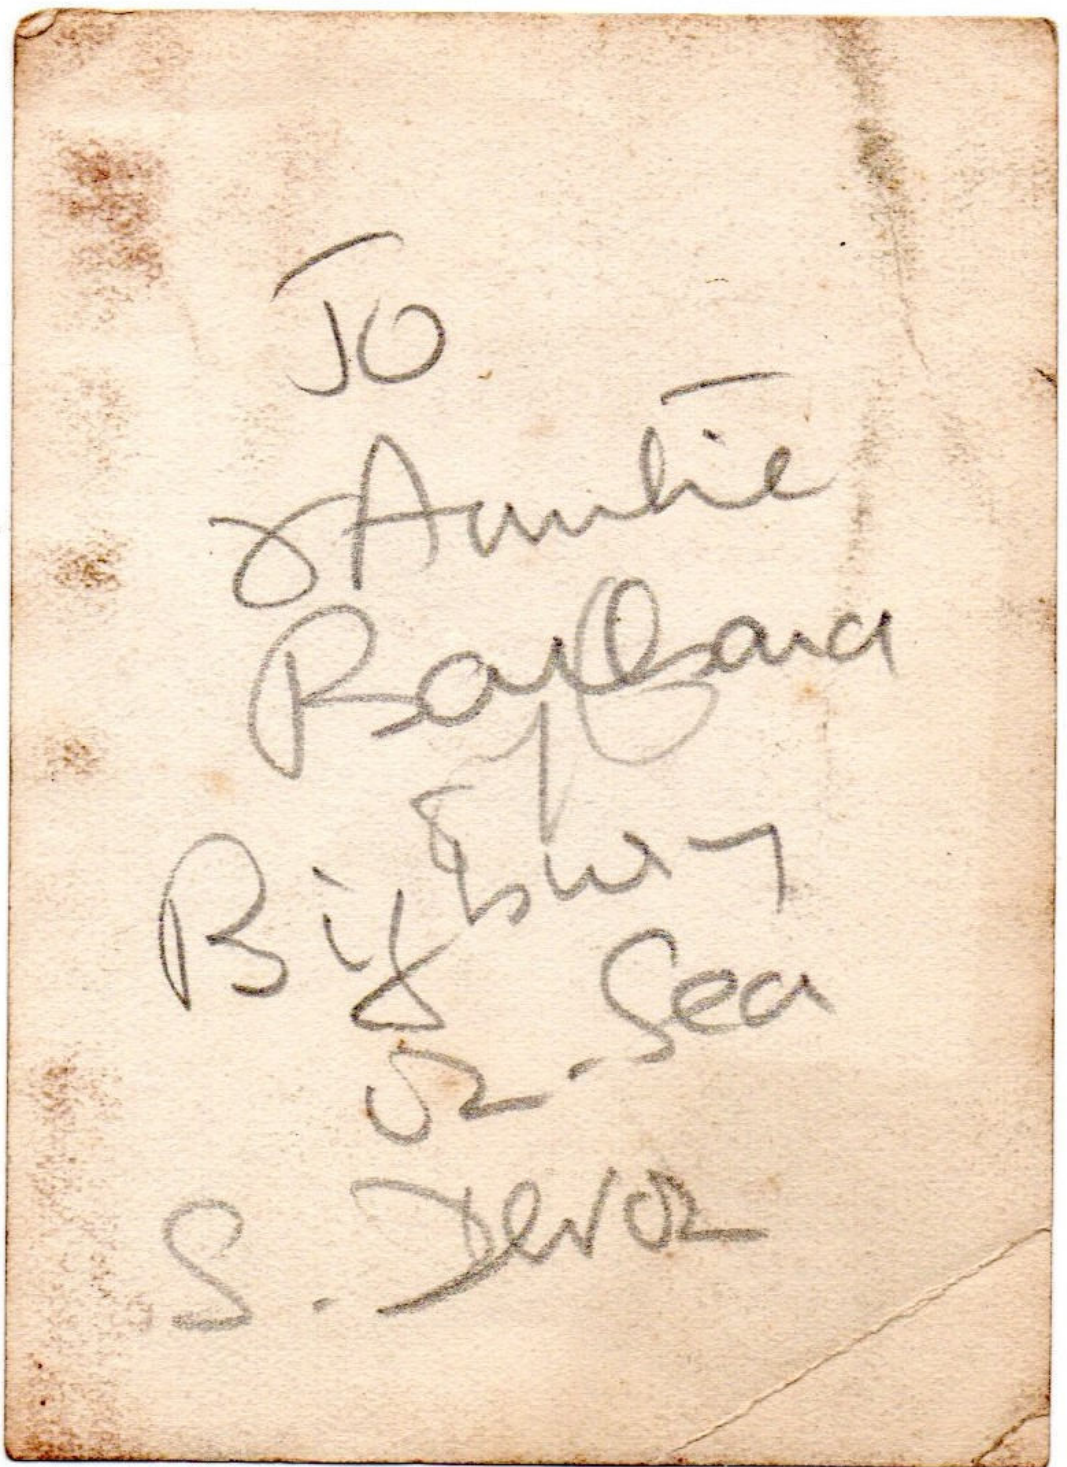 Jo
& Auntie
Barbara
Bigbury
on-Sea
S. Devon